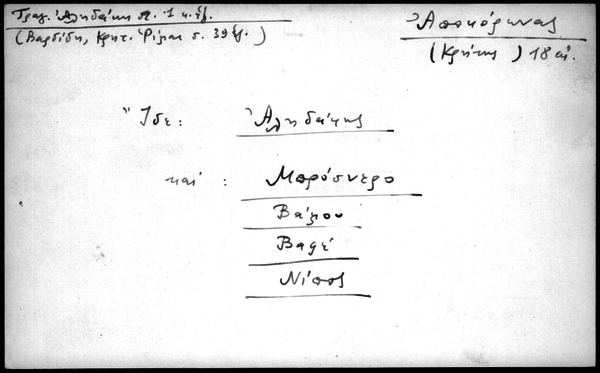 Τραγ. Ἀληδάκη σ. 1 κ.ἑξ.
(Βαρδίδη, Κρητ. Ρίμαι σ. 39 ἑξ.)
Ἀποκόρωνας
(Κρήτης) 18 αἰ.
Ἴδε: Ἀληδάκης
καί: Μπρόσνερο
Βάμου
Βαφέ
Νίππος